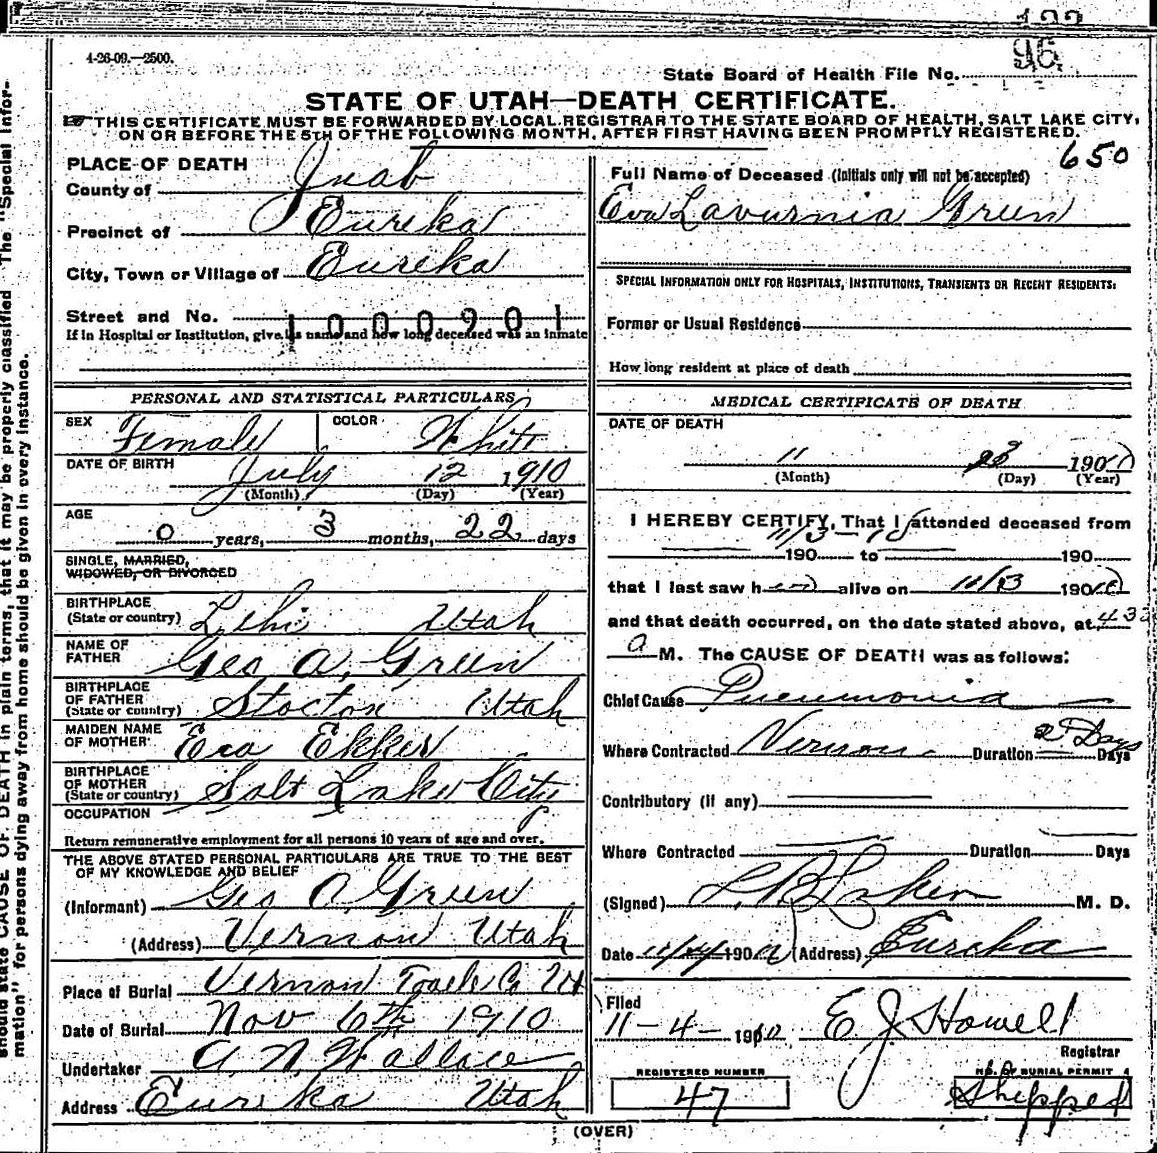 4-26-09.—2500.
96
State Board of Health File No.
STATE OF UTAH—DEATH CERTIFICATE.
THIS CERTIFICATE MUST BE FORWARDED BY LOCAL REGISTRAR TO THE STATE BOARD OF HEALTH, SALT LAKE CITY,
ON OR BEFORE THE 5TH OF THE FOLLOWING MONTH, AFTER FIRST HAVING BEEN PROMPTLY REGISTERED.
650
PLACE OF DEATH
County of Juab
Precinct of Eureka
City, Town or Village of Eureka
Street and No.
1000901
If in Hospital or Institution, give its name and how long deceased was an inmate
PERSONAL AND STATISTICAL PARTICULARS
SEX Female COLOR White
DATE OF BIRTH July 12 1910
(Month) (Day) (Year)
AGE
0 years, 3 months, 22 days
SINGLE, MARRIED,
WIDOWED, OR DIVORCED
BIRTHPLACE
(State or country) Lehi Utah
NAME OF
FATHER Geo A. Green
BIRTHPLACE
OF FATHER
(State or country) Stocton Utah
MAIDEN NAME
OF MOTHER Eva Ekker
BIRTHPLACE
OF MOTHER
(State or country) Salt Lake City
OCCUPATION
Return remunerative employment for all persons 10 years of age and over.
THE ABOVE STATED PERSONAL PARTICULARS ARE TRUE TO THE BEST
OF MY KNOWLEDGE AND BELIEF
(Informant) Geo A Green
(Address) Vernon Utah
Place of Burial Vernon Tooele Co Ut
Date of Burial Nov 6th 1910
Undertaker A. N. Wallace
Address Eureka Utah
Full Name of Deceased (Initials only will not be accepted)
Eva Lavurnia Green
SPECIAL INFORMATION ONLY FOR HOSPITALS, INSTITUTIONS, TRANSIENTS OR RECENT RESIDENTS:
Former or Usual Residence
How long resident at place of death
MEDICAL CERTIFICATE OF DEATH
DATE OF DEATH
11 3 190
(Month) (Day) (Year)
I HEREBY CERTIFY, That I attended deceased from
11/3-10
190 to 190
that I last saw her alive on 11/3 190
and that death occurred, on the date stated above, at 430
a M. The CAUSE OF DEATH was as follows:
Chief Cause Pneumonia
Where Contracted Vernon Duration 2 Days Days
Contributory (if any)
Where Contracted Duration Days
(Signed) M. D.
Date 11/4/190 (Address) Eureka
Filed
11-4-1910 E J Howell
Registrar
REGISTERED NUMBER
47
NO. OF BURIAL PERMIT
Shipped
(OVER)
should state CAUSE OF DEATH in plain terms, that it may be properly classified The "Special Infor-
mation" for persons dying away from home should be given in every instance.